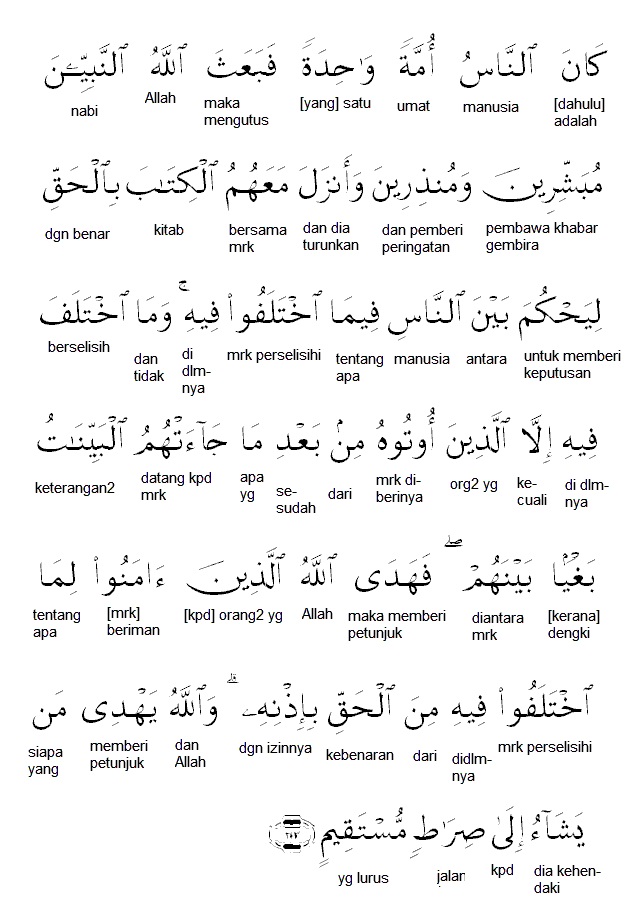 كَانَ ٱلنَّاسُ أُمَّةً وَٰحِدَةً فَبَعَثَ ٱللَّهُ ٱلنَّبِيِّـۧنَ
[dahulu] adalah manusia umat [yang] satu maka mengutus Allah nabi
مُبَشِّرِينَ وَمُنذِرِينَ وَأَنزَلَ مَعَهُمُ ٱلْكِتَـٰبَ بِٱلْحَقِّ
pembawa khabar gembira dan pemberi peringatan dan dia turunkan bersama mrk kitab dgn benar
لِيَحْكُمَ بَيْنَ ٱلنَّاسِ فِيمَا ٱخْتَلَفُوا۟ فِيهِ ۚ وَمَا ٱخْتَلَفَ
untuk memberi keputusan antara manusia tentang apa mrk perselisihi di dlm-nya dan tidak berselisih
فِيهِ إِلَّا ٱلَّذِينَ أُوتُوهُ مِنۢ بَعْدِ مَا جَآءَتْهُمُ ٱلْبَيِّنَـٰتُ
di dlm-nya ke-cuali org2 yg mrk di-berinya dari se-sudah apa yg datang kpd mrk keterangan2
بَغْيًۢا بَيْنَهُمْ ۖ فَهَدَى ٱللَّهُ ٱلَّذِينَ ءَامَنُوا۟ لِمَا
[kerana] dengki diantara mrk maka memberi petunjuk Allah [kpd] orang2 yg [mrk] beriman tentang apa
ٱخْتَلَفُوا۟ فِيهِ مِنَ ٱلْحَقِّ بِإِذْنِهِۦ ۗ وَٱللَّهُ يَهْدِى مَن
mrk perselisihi didlm-nya dari kebenaran dgn izinnya dan Allah memberi petunjuk siapa yang
يَشَآءُ إِلَىٰ صِرَٰطٍ مُّسْتَقِيمٍ ٢١٣
dia kehen-daki kpd jalan yg lurus